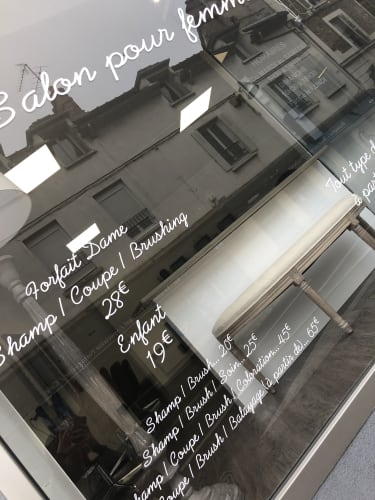 Salon pour femm
Forfait Dame
Shamp / Coupe / Brushing
28€
Enfant
19€
Shamp / Brush... 20€
Shamp / Brush / Soin... 25€
Shamp / Coupe / Brush / Coloration...45€
Coupe / Brush / Balayage (à partir de)... 65€
Tout type d
à part